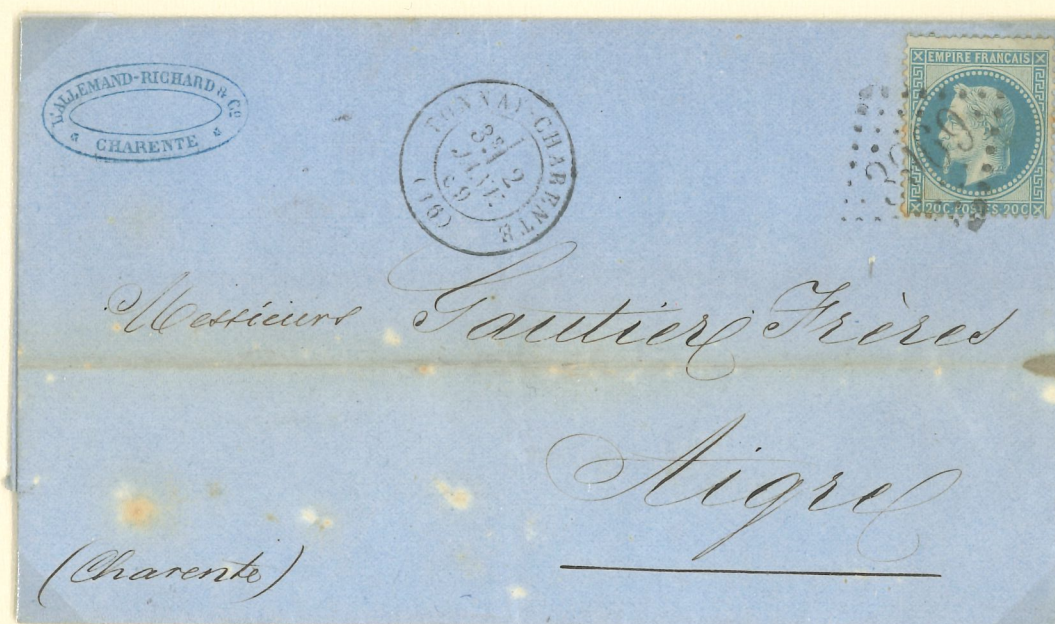 LALLEMAND-RICHARD & Cº
CHARENTE
TONNAY-CHARENTE
3E
2
JANV.
69
(16)
EMPIRE FRANÇAIS
20C POSTES 20C
Messieurs Gautier Frères
Aigre
(Charente)